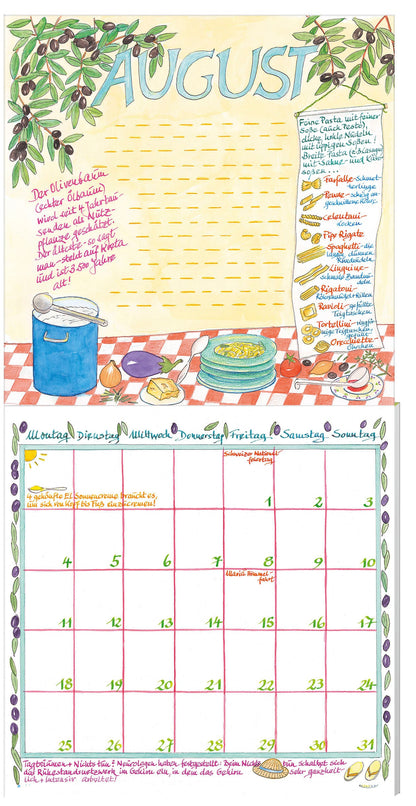 AUGUST
Der Olivenbaum
(echter Ölbaum)
wird seit 4 Jahrtau-
senden als Nutz-
pflanze geschätzt.
Der älteste - so sagt
man - steht auf Kreta
und ist 3.500 Jahre
alt!
Feine Pasta mit feiner
Soße (auch Pesto),
dicke, hohle Nudeln
mit üppigen Soßen!
Breite Pasta
mit Sahne- und Käse-
soßen...
Farfalle - Schmet-
terlinge
Penne - schräg an-
geschnittene
Celentani -
locken
Pipe Rigate
Spaghetti - die
dünnen
Rundnudeln
Linguine -
schmale Bandnu-
deln
Rigatoni -
Ravioli - gefüllte
Teigtaschen
Tortellini -
Orecchiette -
Öhrchen
Montag Dienstag Mittwoch Donnerstag Freitag Samstag Sonntag
Schweizer National-
feiertag
4 gehäufte El Sonnencreme braucht es,
um sich von Kopf bis Fuß einzucremen!
1 2 3
4 5 6 7 8 9 10
Mariä Himmel-
fahrt
11 12 13 14 15 16 17
18 19 20 21 22 23 24
25 26 27 28 29 30 31
Tagträumen + Nichtstun! Neurologen haben festgestellt: Beim Nichts tun schaltet sich
das Ruhestandsnetzwerk im Gehirn ein, in dem das Gehirn sehr ganzheit-
lich + intensiv arbeitet!